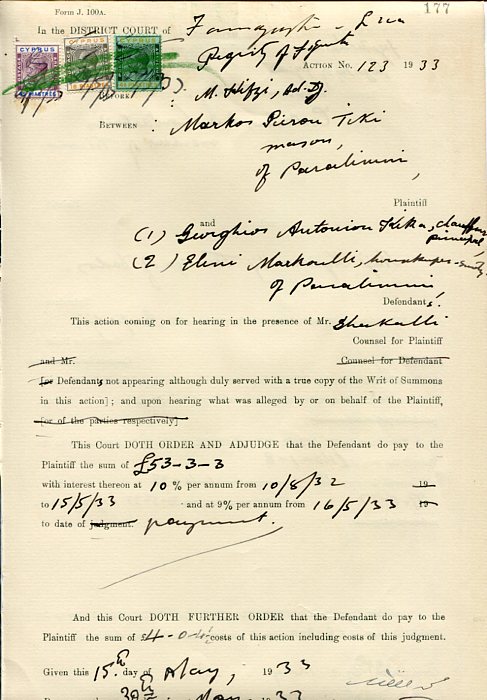 Form J. 100A.
177
In the DISTRICT COURT of Famagusta
ACTION No. 123 1933
CYPRUS CYPRUS CYPRUS
BEFORE: M. Hifzi,
BETWEEN: Markos Pierou Tiki
mason,
of Paralimni,
Plaintiff
and
(1) Georghios Antoniou Kika, chauffeur principal,
(2) Eleni Markoulli,
of Paralimni,
Defendants.
This action coming on for hearing in the presence of Mr.
Counsel for Plaintiff
and Mr. Counsel for Defendant
for Defendants not appearing although duly served with a true copy of the Writ of Summons
in this action]; and upon hearing what was alleged by or on behalf of the Plaintiff,
for of the parties respectively]
This Court DOTH ORDER AND ADJUDGE that the Defendant do pay to the
Plaintiff the sum of £53-3-3
with interest thereon at 10 % per annum from 10/8/32 19
to 15/5/33 and at 9% per annum from 16/5/33 19
to date of judgment. payment.
And this Court DOTH FURTHER ORDER that the Defendant do pay to the
Plaintiff the sum of £4-0- costs of this action including costs of this judgment.
Given this 15th day of May, 1933
30th May 33